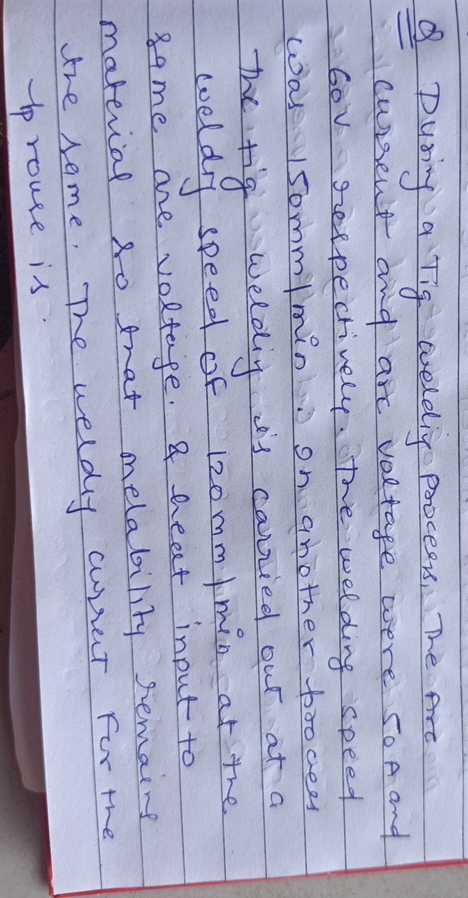 Q During a Tig welding process, The Arc
current and arc voltage were 50A and
60V respectively. The welding speed
was 150mm/min. On another process
The tig welding is carried out at a
welding speed of 120mm/min at the
same arc voltage. & heat input to
material so that metability remains
the same. The welding current for the
process is.